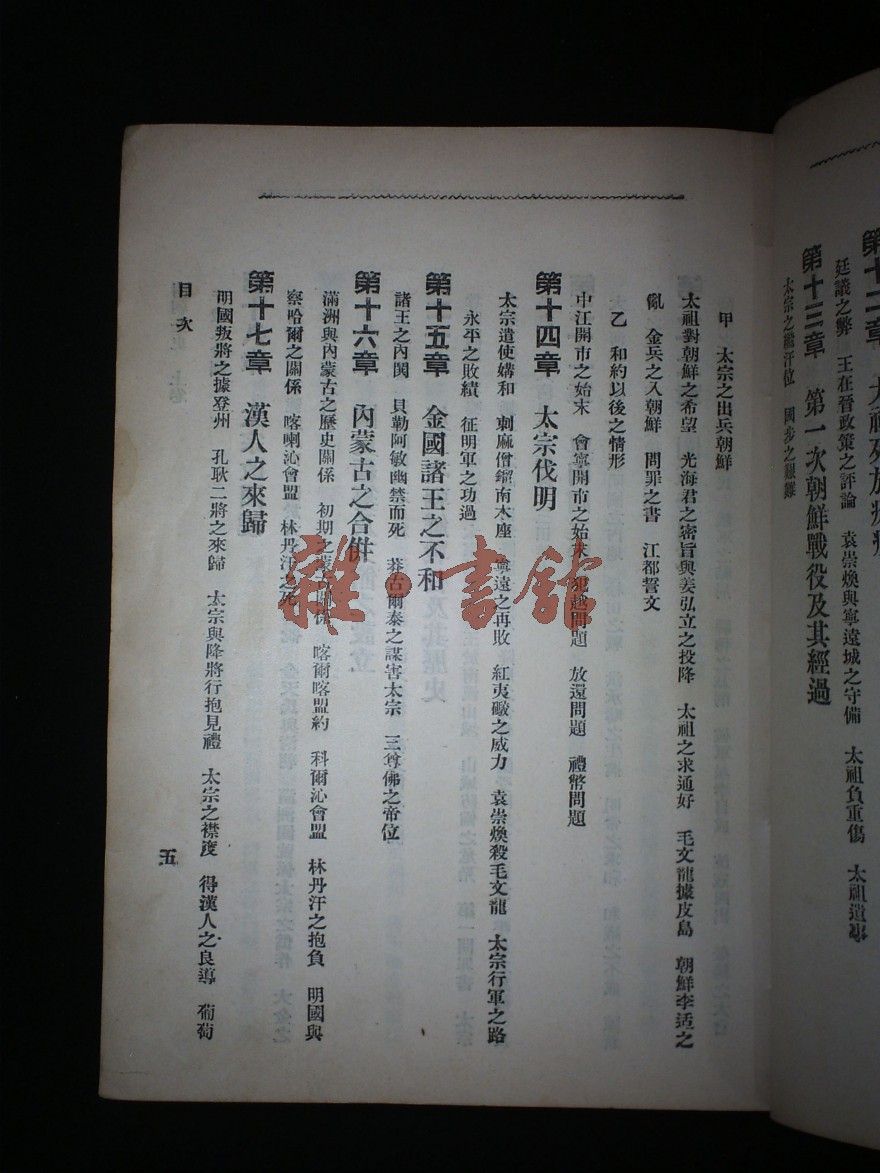 第十二章　太祖死於癰疽
廷議之弊　王在晉政策之評論　袁崇煥與寧遠城之守備　太祖負重傷　太祖遺事
第十三章　第一次朝鮮戰役及其經過
太宗之繼汗位　國步之艱難
甲　太宗之出兵朝鮮
太祖對朝鮮之希望　光海君之密旨與姜弘立之投降　太祖之求通好　毛文龍據皮島　朝鮮李适之
亂　金兵之入朝鮮　問罪之書　江都誓文
乙　和約以後之情形
中江開市之始末　會寧開市之始末　犯越問題　放還問題　禮幣問題
第十四章　太宗伐明
太宗遣使媾和　喇麻僧鎦南木座　寧遠之再敗　紅夷礮之威力　袁崇煥殺毛文龍　太宗行軍之路
永平之敗績　征明軍之功過
第十五章　金國諸王之不和
諸王之內鬩　貝勒阿敏幽禁而死　莽古爾泰之謀害太宗　三尊佛之帝位
第十六章　內蒙古之合併
滿洲與內蒙古之歷史關係　初期之蒙古關係　喀爾喀盟約　科爾沁會盟　林丹汗之抱負　明國與
察哈爾之關係　喀喇沁會盟　林丹汗之死
第十七章　漢人之來歸
明國叛將之據登州　孔耿二將之來歸　太宗與降將行抱見禮　太宗之襟度　得漢人之良導　葡萄
目次
五
雜·書館